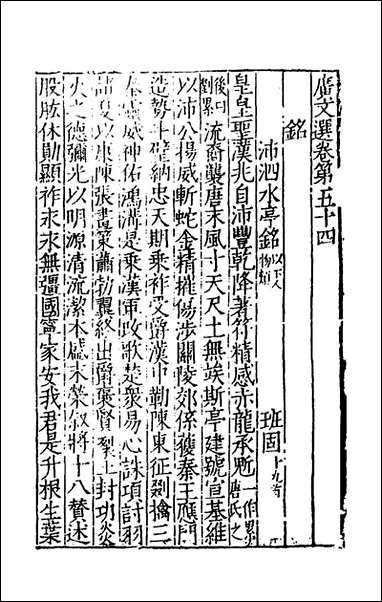 廣文選卷第五十四
銘
沛泗水亭銘 以下人物類 班固 十九首
皇皇聖漢兆自沛豐乾降著符精感赤龍承魁一作累唐氏之
後曰劉累流裔襲唐末風寸天尺土無竢斯亭建號宣基維
以沛公揚威斬蛇金精摧傷涉關陵郊係獲秦王應門
造勢斗璧納忠天期乘祚受爵漢中勒陳東征剟擒三
秦靈威神佑鴻溝是乘漢軍改歌楚衆易心誅項討羽
諸夏以康陳張畫策蕭勃翼終出爵褒賢裂土封功炎
火之德彌光以明源清流潔本盛末榮叙將十八贊述
股肱休勛顯祚永永無疆國寧家安我君是升根生葉